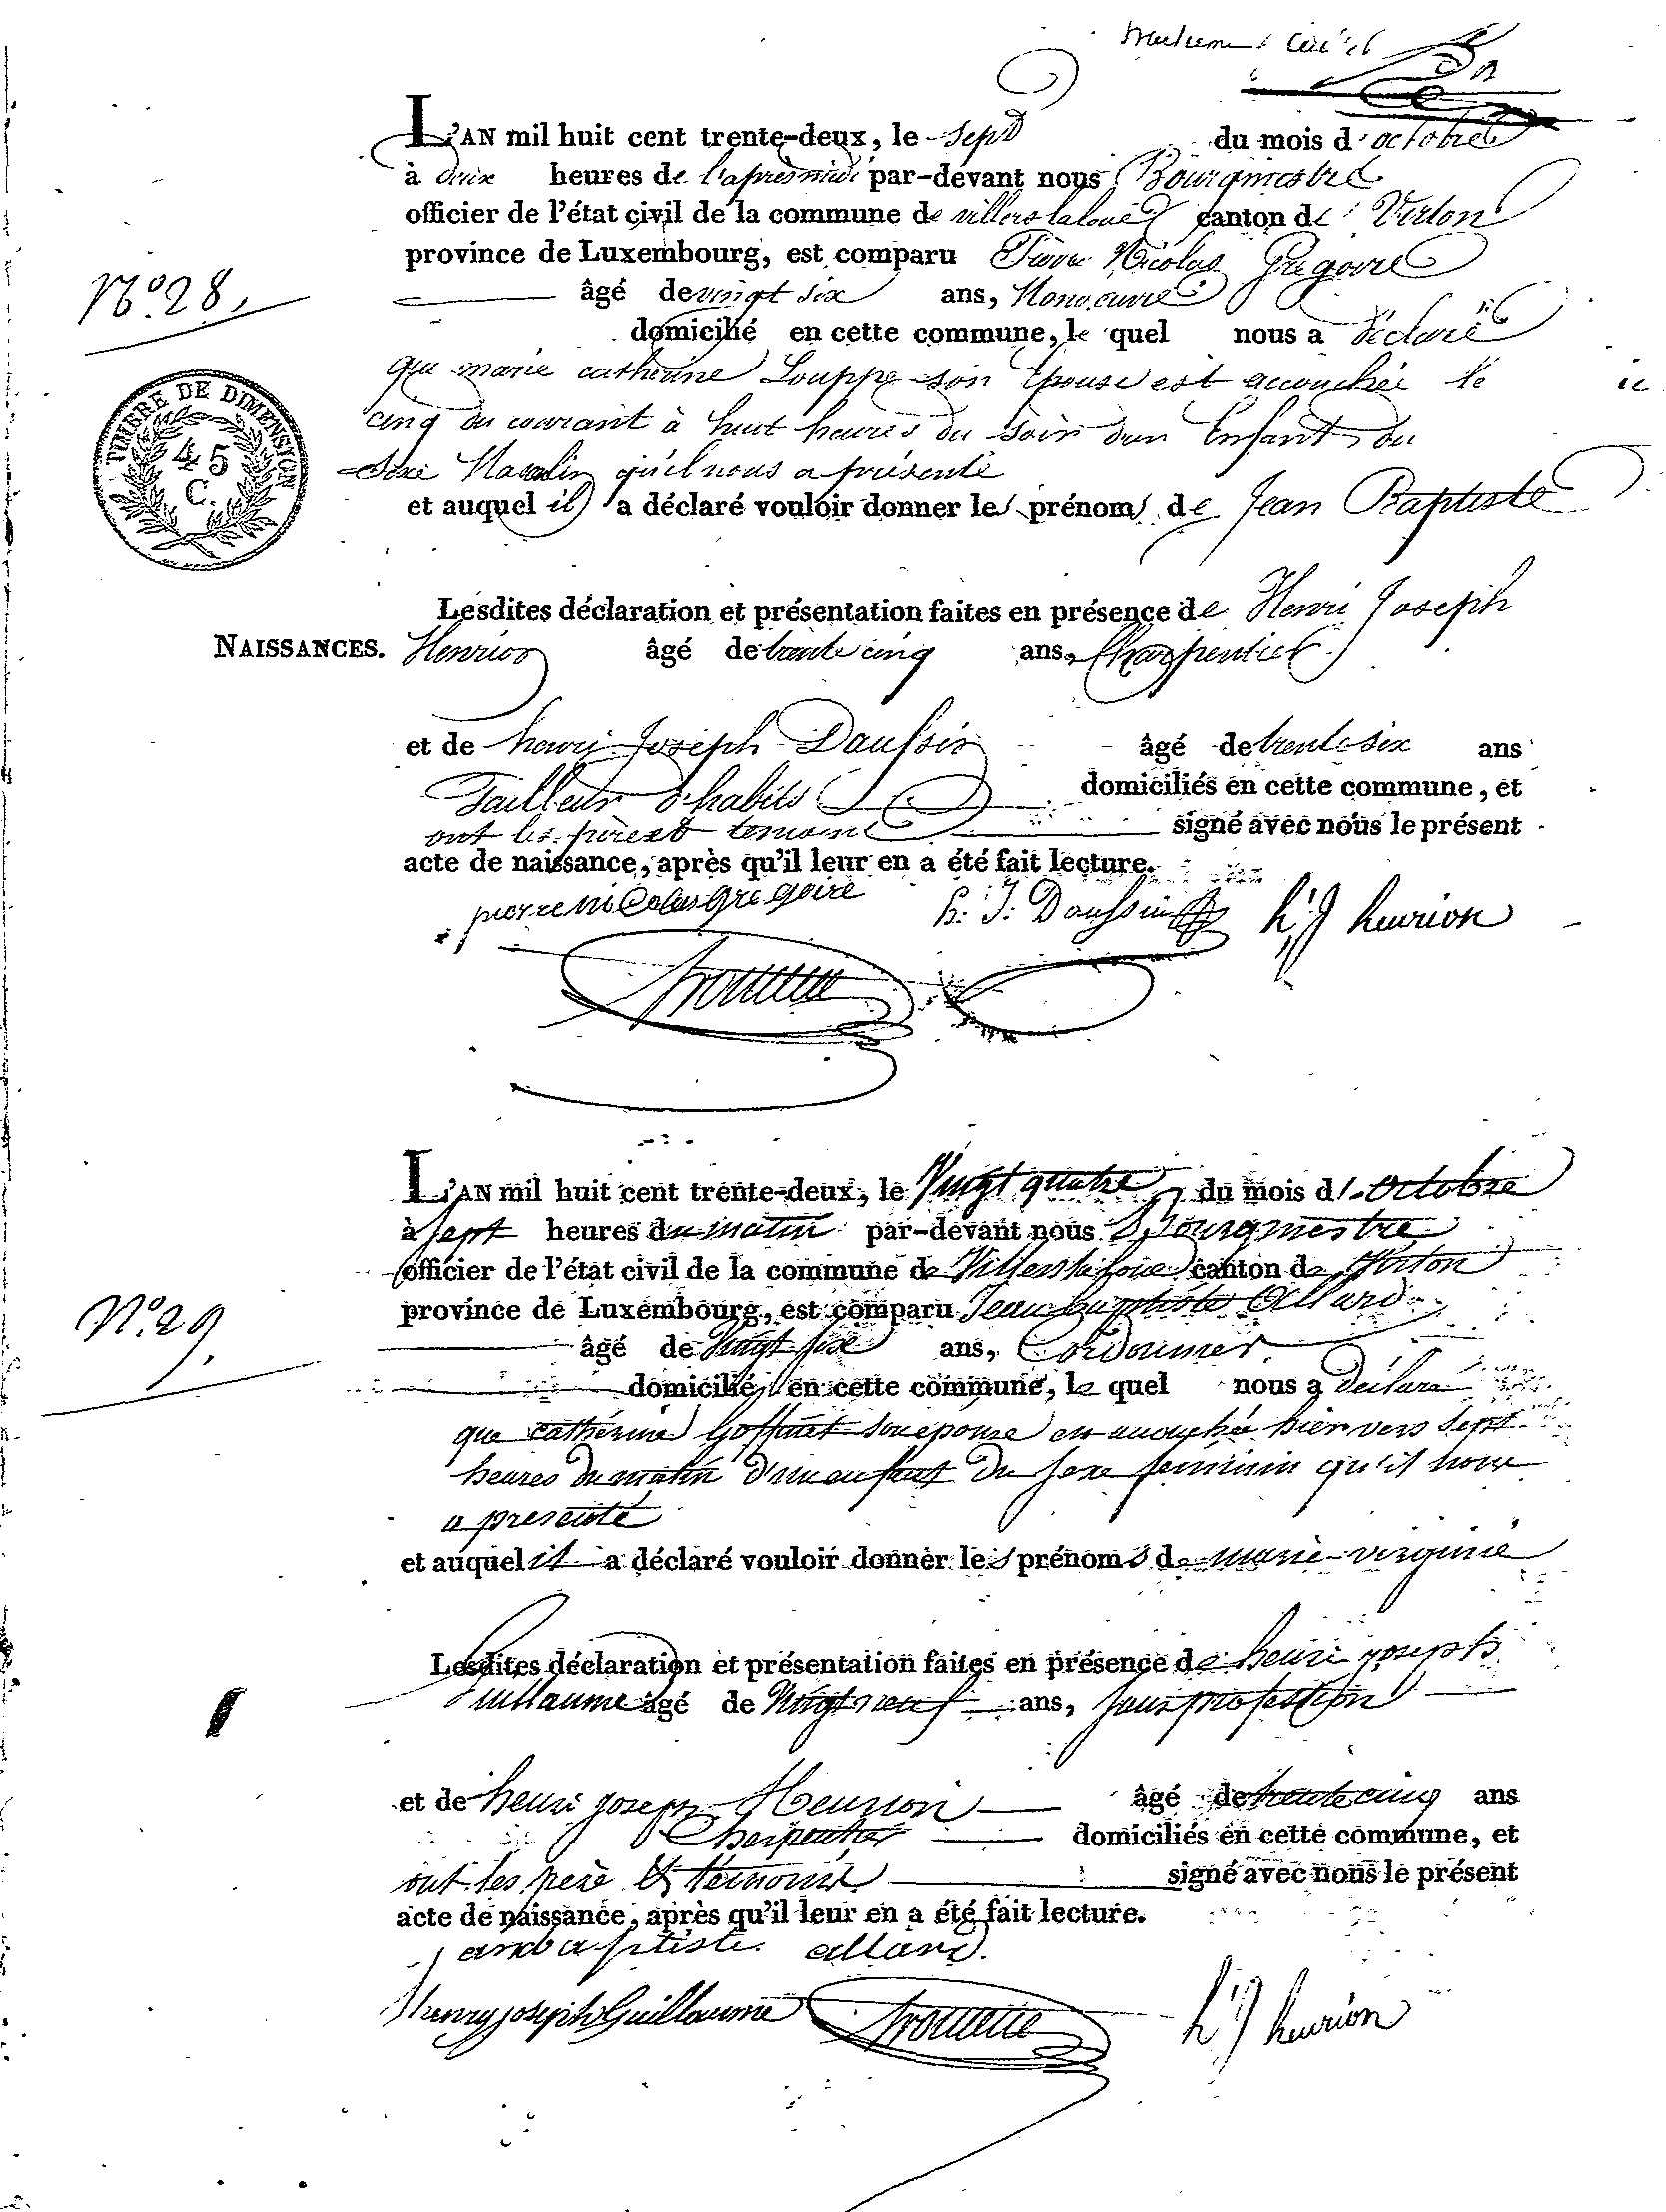 L'AN mil huit cent trente-deux, le sept du mois d'octobre
à deux heures de l'après midi par-devant nous Bourgmestre
officier de l'état civil de la commune de villers laloue canton de Virton
province de Luxembourg, est comparu Pierre Nicolas Gregoire
N.º 28.
âgé de vingt six ans, Manoeuvre
domicilié en cette commune, le quel nous a déclaré
que marie catherine Louppe son Epouse est accouchée le
cinq du courant à huit heures du soir d'un Enfant du
TIMBRE DE DIMENSION
45
C.
Sexe Masculin qu'il nous a présenté
et auquel il a déclaré vouloir donner les prénoms de Jean Baptiste
Lesdites déclaration et présentation faites en présence de Henri Joseph
NAISSANCES.
Henrion âgé de trente cinq ans, Charpentier
et de henri Joseph Daussin âgé de trente six ans
Tailleur d'habits domiciliés en cette commune, et
ont les père et temoins signé avec nous le présent
acte de naissance, après qu'il leur en a été fait lecture.
pierre nicolas gregoire h. J. Daussin h J henrion
L'AN mil huit cent trente-deux, le Vingt quatre du mois d'octobre
à sept heures du matin par-devant nous Bourgmestre
officier de l'état civil de la commune de Villers la loue canton de Virton
province de Luxembourg, est comparu Jean baptiste Allard
N.º 29.
âgé de Vingt six ans, Cordonnier
domicilié en cette commune, le quel nous a déclaré
que catherine Goffinet son epouse est accouchée hier vers sept
heures du matin d'un enfant du sexe feminin qu'il nous
a presenté
et auquel il a déclaré vouloir donner les prénoms de marie virginie
Lesdites déclaration et présentation faites en présence de henri joseph
Guillaume âgé de Vingt neuf ans, sans profession
et de henri joseph Henrion âgé de trente cinq ans
Charpentier domiciliés en cette commune, et
ont les père et temoins signé avec nous le présent
acte de naissance, après qu'il leur en a été fait lecture.
jean baptiste allard.
Henry joseph Guillaume h J henrion